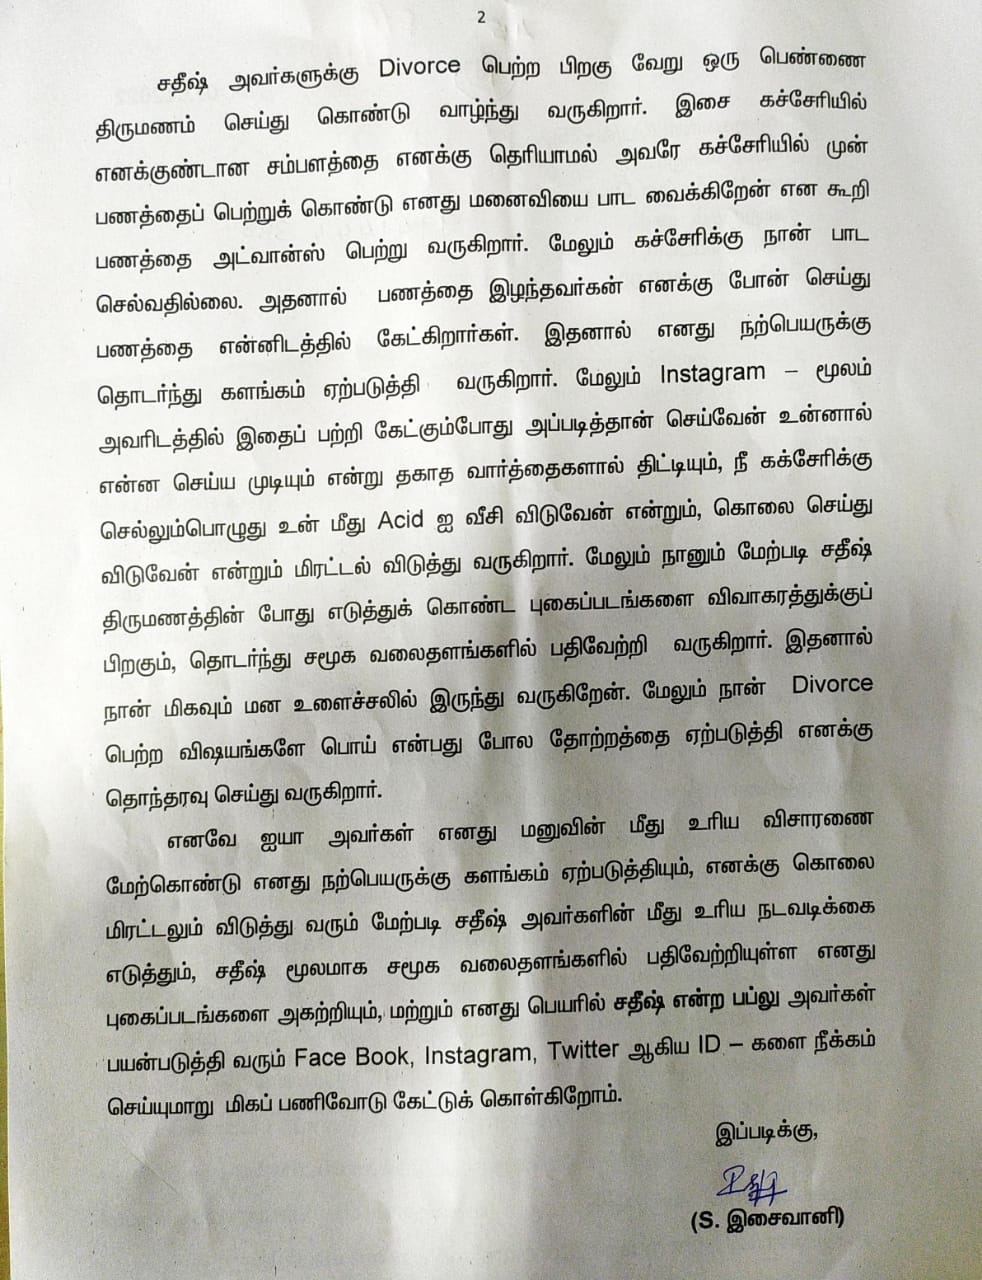 2
சதீஷ் அவர்களுக்கு Divorce பெற்ற பிறகு வேறு ஒரு பெண்ணை
திருமணம் செய்து கொண்டு வாழ்ந்து வருகிறார். இசை கச்சேரியில்
எனக்குண்டான சம்பளத்தை எனக்கு தெரியாமல் அவரே கச்சேரியில் முன்
பணத்தைப் பெற்றுக் கொண்டு எனது மனைவியை பாட வைக்கிறேன் என கூறி
பணத்தை அட்வான்ஸ் பெற்று வருகிறார். மேலும் கச்சேரிக்கு நான் பாட
செல்வதில்லை. அதனால் பணத்தை இழந்தவர்கன் எனக்கு போன் செய்து
பணத்தை என்னிடத்தில் கேட்கிறார்கள். இதனால் எனது நற்பெயருக்கு
தொடர்ந்து களங்கம் ஏற்படுத்தி வருகிறார். மேலும் Instagram – மூலம்
அவரிடத்தில் இதைப் பற்றி கேட்கும்போது அப்படித்தான் செய்வேன் உன்னால்
என்ன செய்ய முடியும் என்று தகாத வார்த்தைகளால் திட்டியும், நீ கக்சேரிக்கு
செல்லும்பொழுது உன் மீது Acid ஐ வீசி விடுவேன் என்றும், கொலை செய்து
விடுவேன் என்றும் மிரட்டல் விடுத்து வருகிறார். மேலும் நானும் மேற்படி சதீஷ்
திருமணத்தின் போது எடுத்துக் கொண்ட புகைப்படங்களை விவாகரத்துக்குப்
பிறகும், தொடர்ந்து சமூக வலைதளங்களில் பதிவேற்றி வருகிறார். இதனால்
நான் மிகவும் மன உளைச்சலில் இருந்து வருகிறேன். மேலும் நான் Divorce
பெற்ற விஷயங்களே பொய் என்பது போல தோற்றத்தை ஏற்படுத்தி எனக்கு
தொந்தரவு செய்து வருகிறார்.
எனவே ஐயா அவர்கள் எனது மனுவின் மீது உரிய விசாரணை
மேற்கொண்டு எனது நற்பெயருக்கு களங்கம் ஏற்படுத்தியும், எனக்கு கொலை
மிரட்டலும் விடுத்து வரும் மேற்படி சதீஷ் அவர்களின் மீது உரிய நடவடிக்கை
எடுத்தும், சதீஷ் மூலமாக சமூக வலைதளங்களில் பதிவேற்றியுள்ள எனது
புகைப்படங்களை அகற்றியும், மற்றும் எனது பெயரில் சதீஷ் என்ற பப்லு அவர்கள்
பயன்படுத்தி வரும் Face Book, Instagram, Twitter ஆகிய ID – களை நீக்கம்
செய்யுமாறு மிகப் பணிவோடு கேட்டுக் கொள்கிறோம்.
இப்படிக்கு,
(S. இசைவானி)